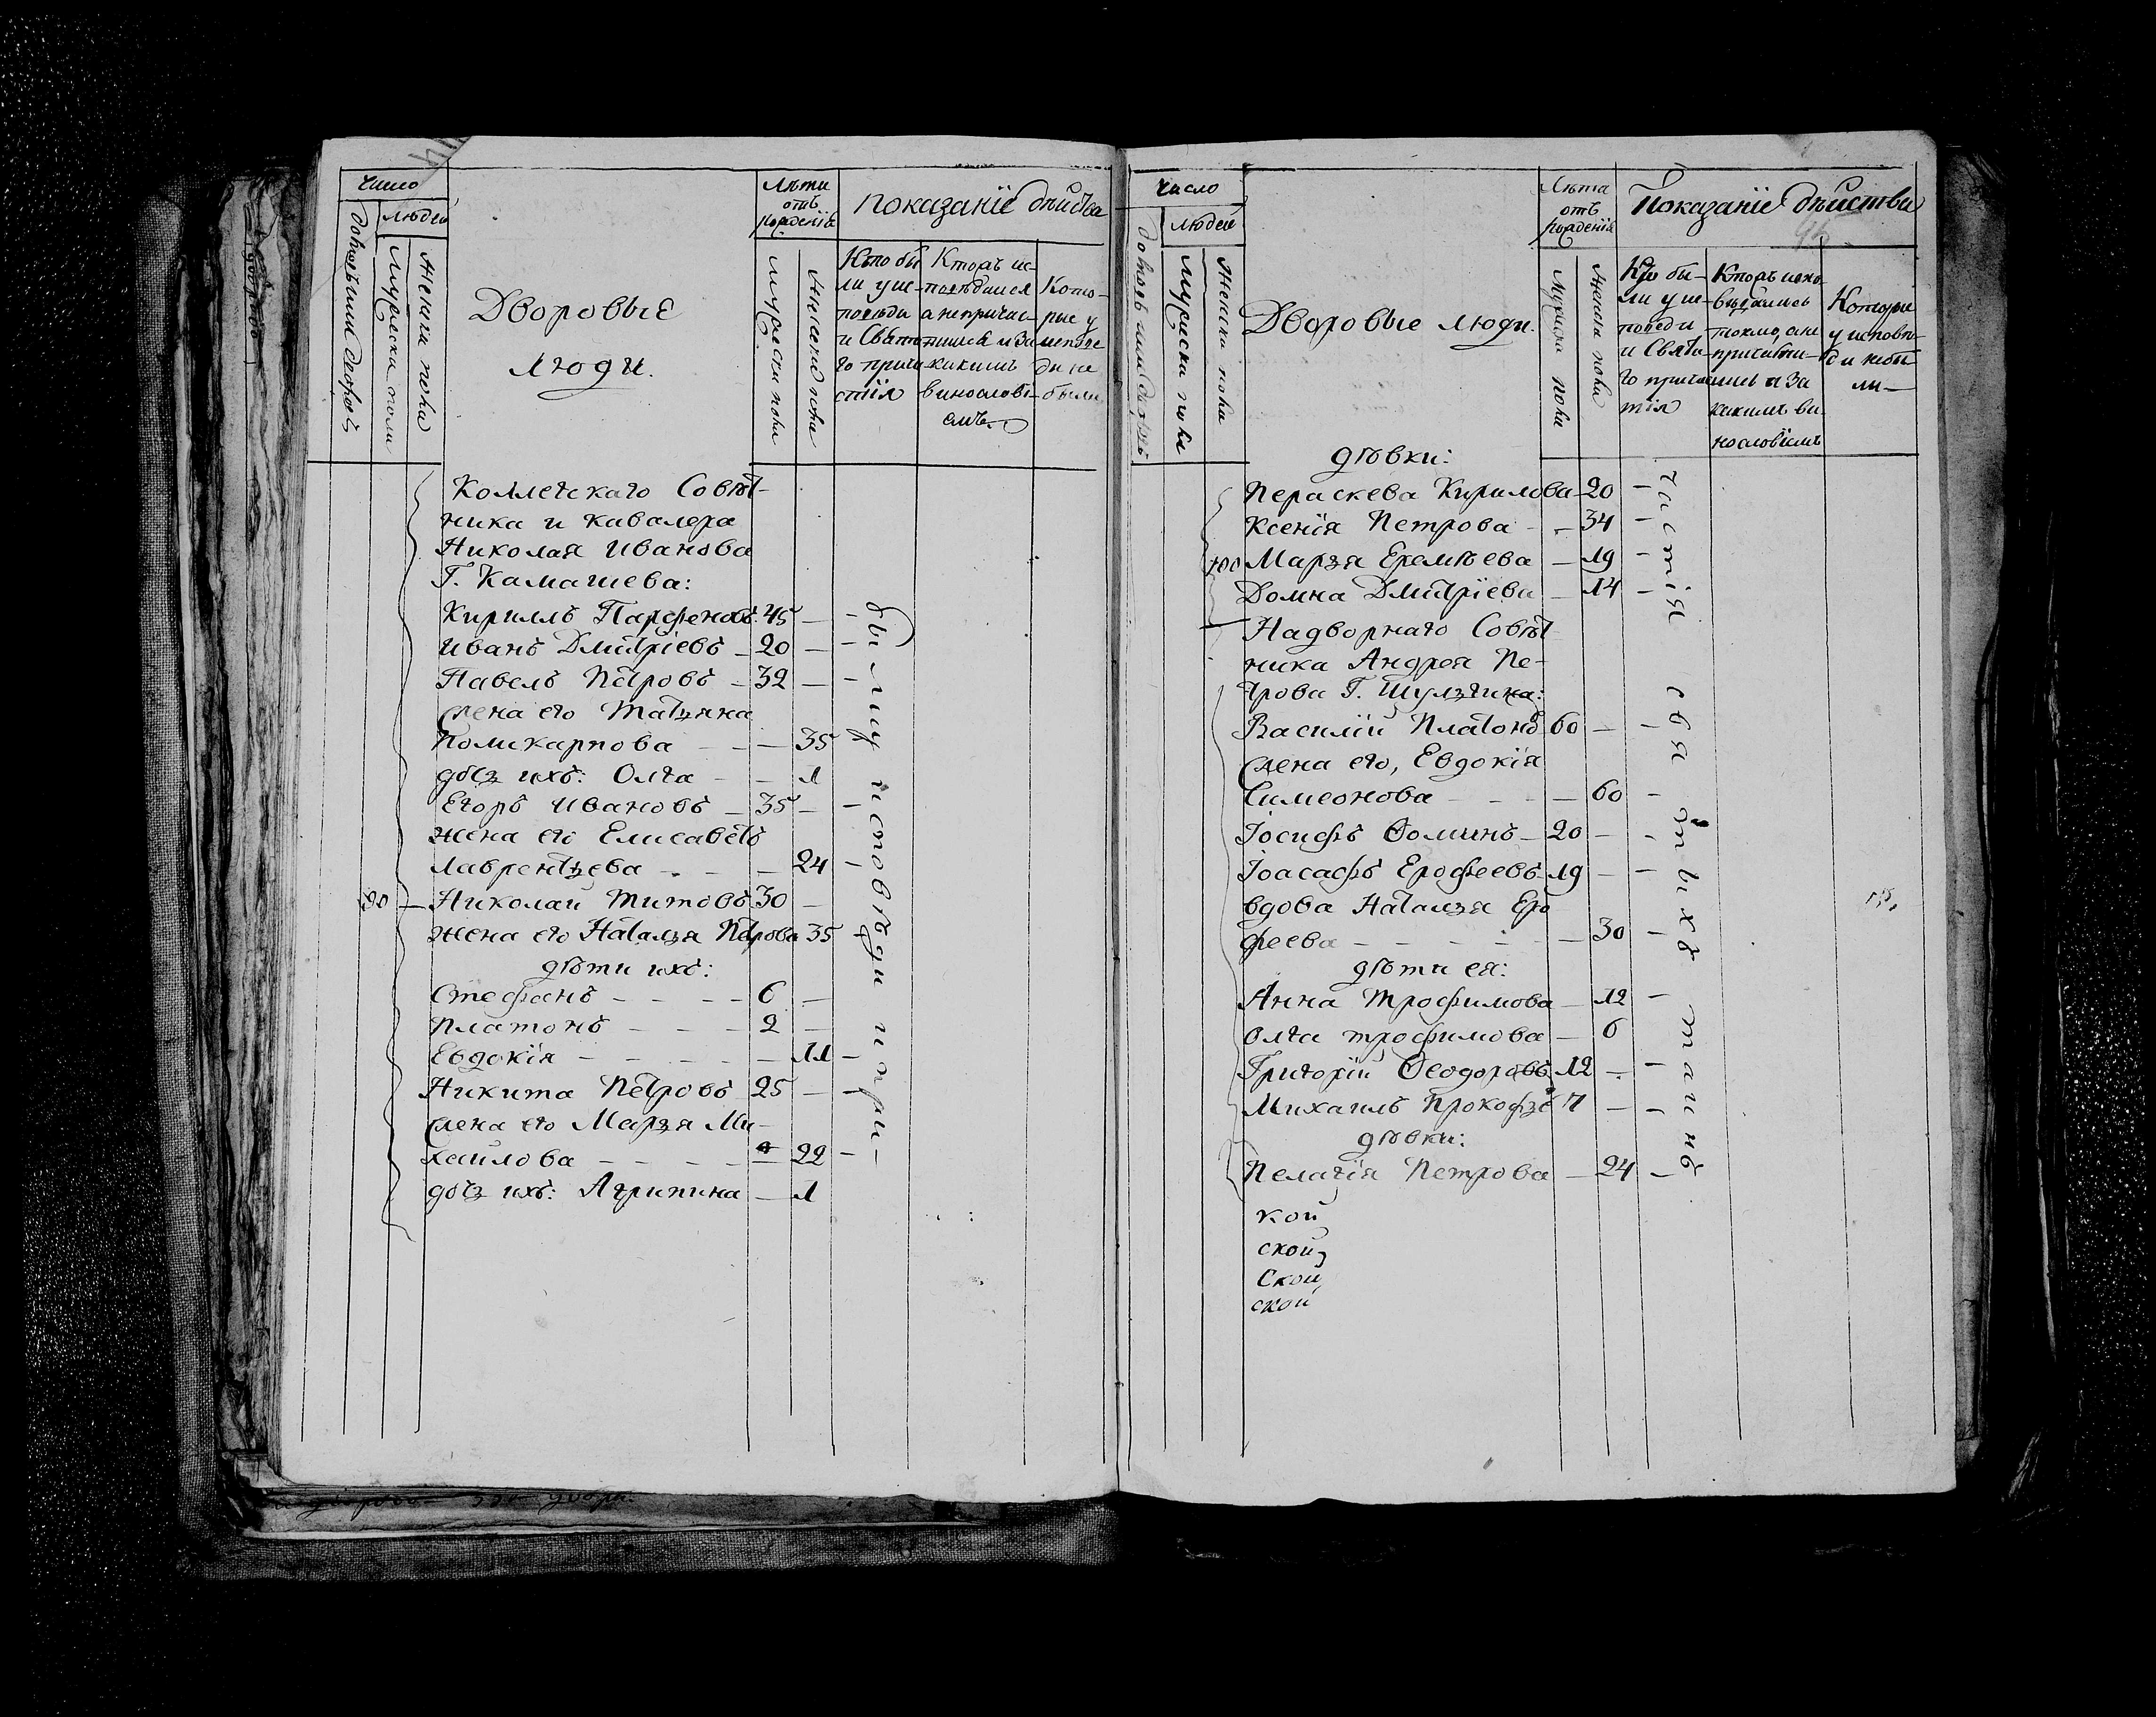 Число
людей
Мужеска пола
Женска пола
Дворовые
люди.
Лѣта
отъ
рожденія
Мужеска пола
Женска пола
Показаніе дѣйства
Кто бы
ли у ис-
повѣди
и Свята
го прича
стія
Кто жъ ис-
повѣдался
а не причас-
тился и за
какимъ
винословi-
емъ.
Кото-
рые у
исповѣ
ди не
были
Коллежскаго Совѣт-
ника и кавалера
Николая Иванова
Г. Камашева:
Кириллъ Парфеновъ 45 —
Иванъ Дмитріевъ — 20 —
Павелъ Петровъ — 32 —
жена его Татьяна
Поликарпова — — — 35
дочь ихъ: Олга — — 1
Егоръ Ивановъ — 35 —
жена его Елисаветъ
Лаврентьева — — 24 —
Николай Титовъ 30 —
жена его Наталья Петрова 35
дѣти ихъ:
Стефанъ — — — — 6 —
Платонъ — — — 2 —
Евдокія — — — — — 11 —
Никита Петровъ 25 — —
жена его Марья Ми-
хайлова — — — — 22 —
дочь ихъ: Агрипина — 1
были у исповѣди и при-
Число
людей
Мужеска пола
Женска пола
Дворовые люди.
Лѣта
отъ
рожденія
Мужеска пола
Женска пола
Показаніе дѣйства
Кто бы-
ли у ис-
поведи
и Свята-
го прича
тія
Кто жъ испо-
вѣдались
токмо, а не
причасти-
лись и за
какимъ ви-
нословіемъ
Которые
у исповѣ-
ди не бы
ли —
дѣвки:
Пераскева Кирилова — 20 —
Ксенія Петрова — — 34 —
100 Марья Еремѣева — 19 —
Домна Дмитріева — 14 —
Надворнаго Совѣт
ника Андрея Пе-
трова Г. Шульгина:
Василій Платоно 60 — —
жена его, Евдокія
Симеонова — — — — 60 —
Іосифъ Ѳоминъ — 20 — —
Іоасафъ Ерофеевъ 19 — —
вдова Наталья Еро
феева — — — — — 30 —
дѣти ея:
Анна Трофимова — 12 —
Олга Трофимова — 6
Григорій Ѳеодоровъ 12 — —
Михаилъ Прокофье 7 — —
дѣвки:
Пелагія Петрова — 24 —
кой
ской
Ской
ской
частія
святыхъ
таинъ